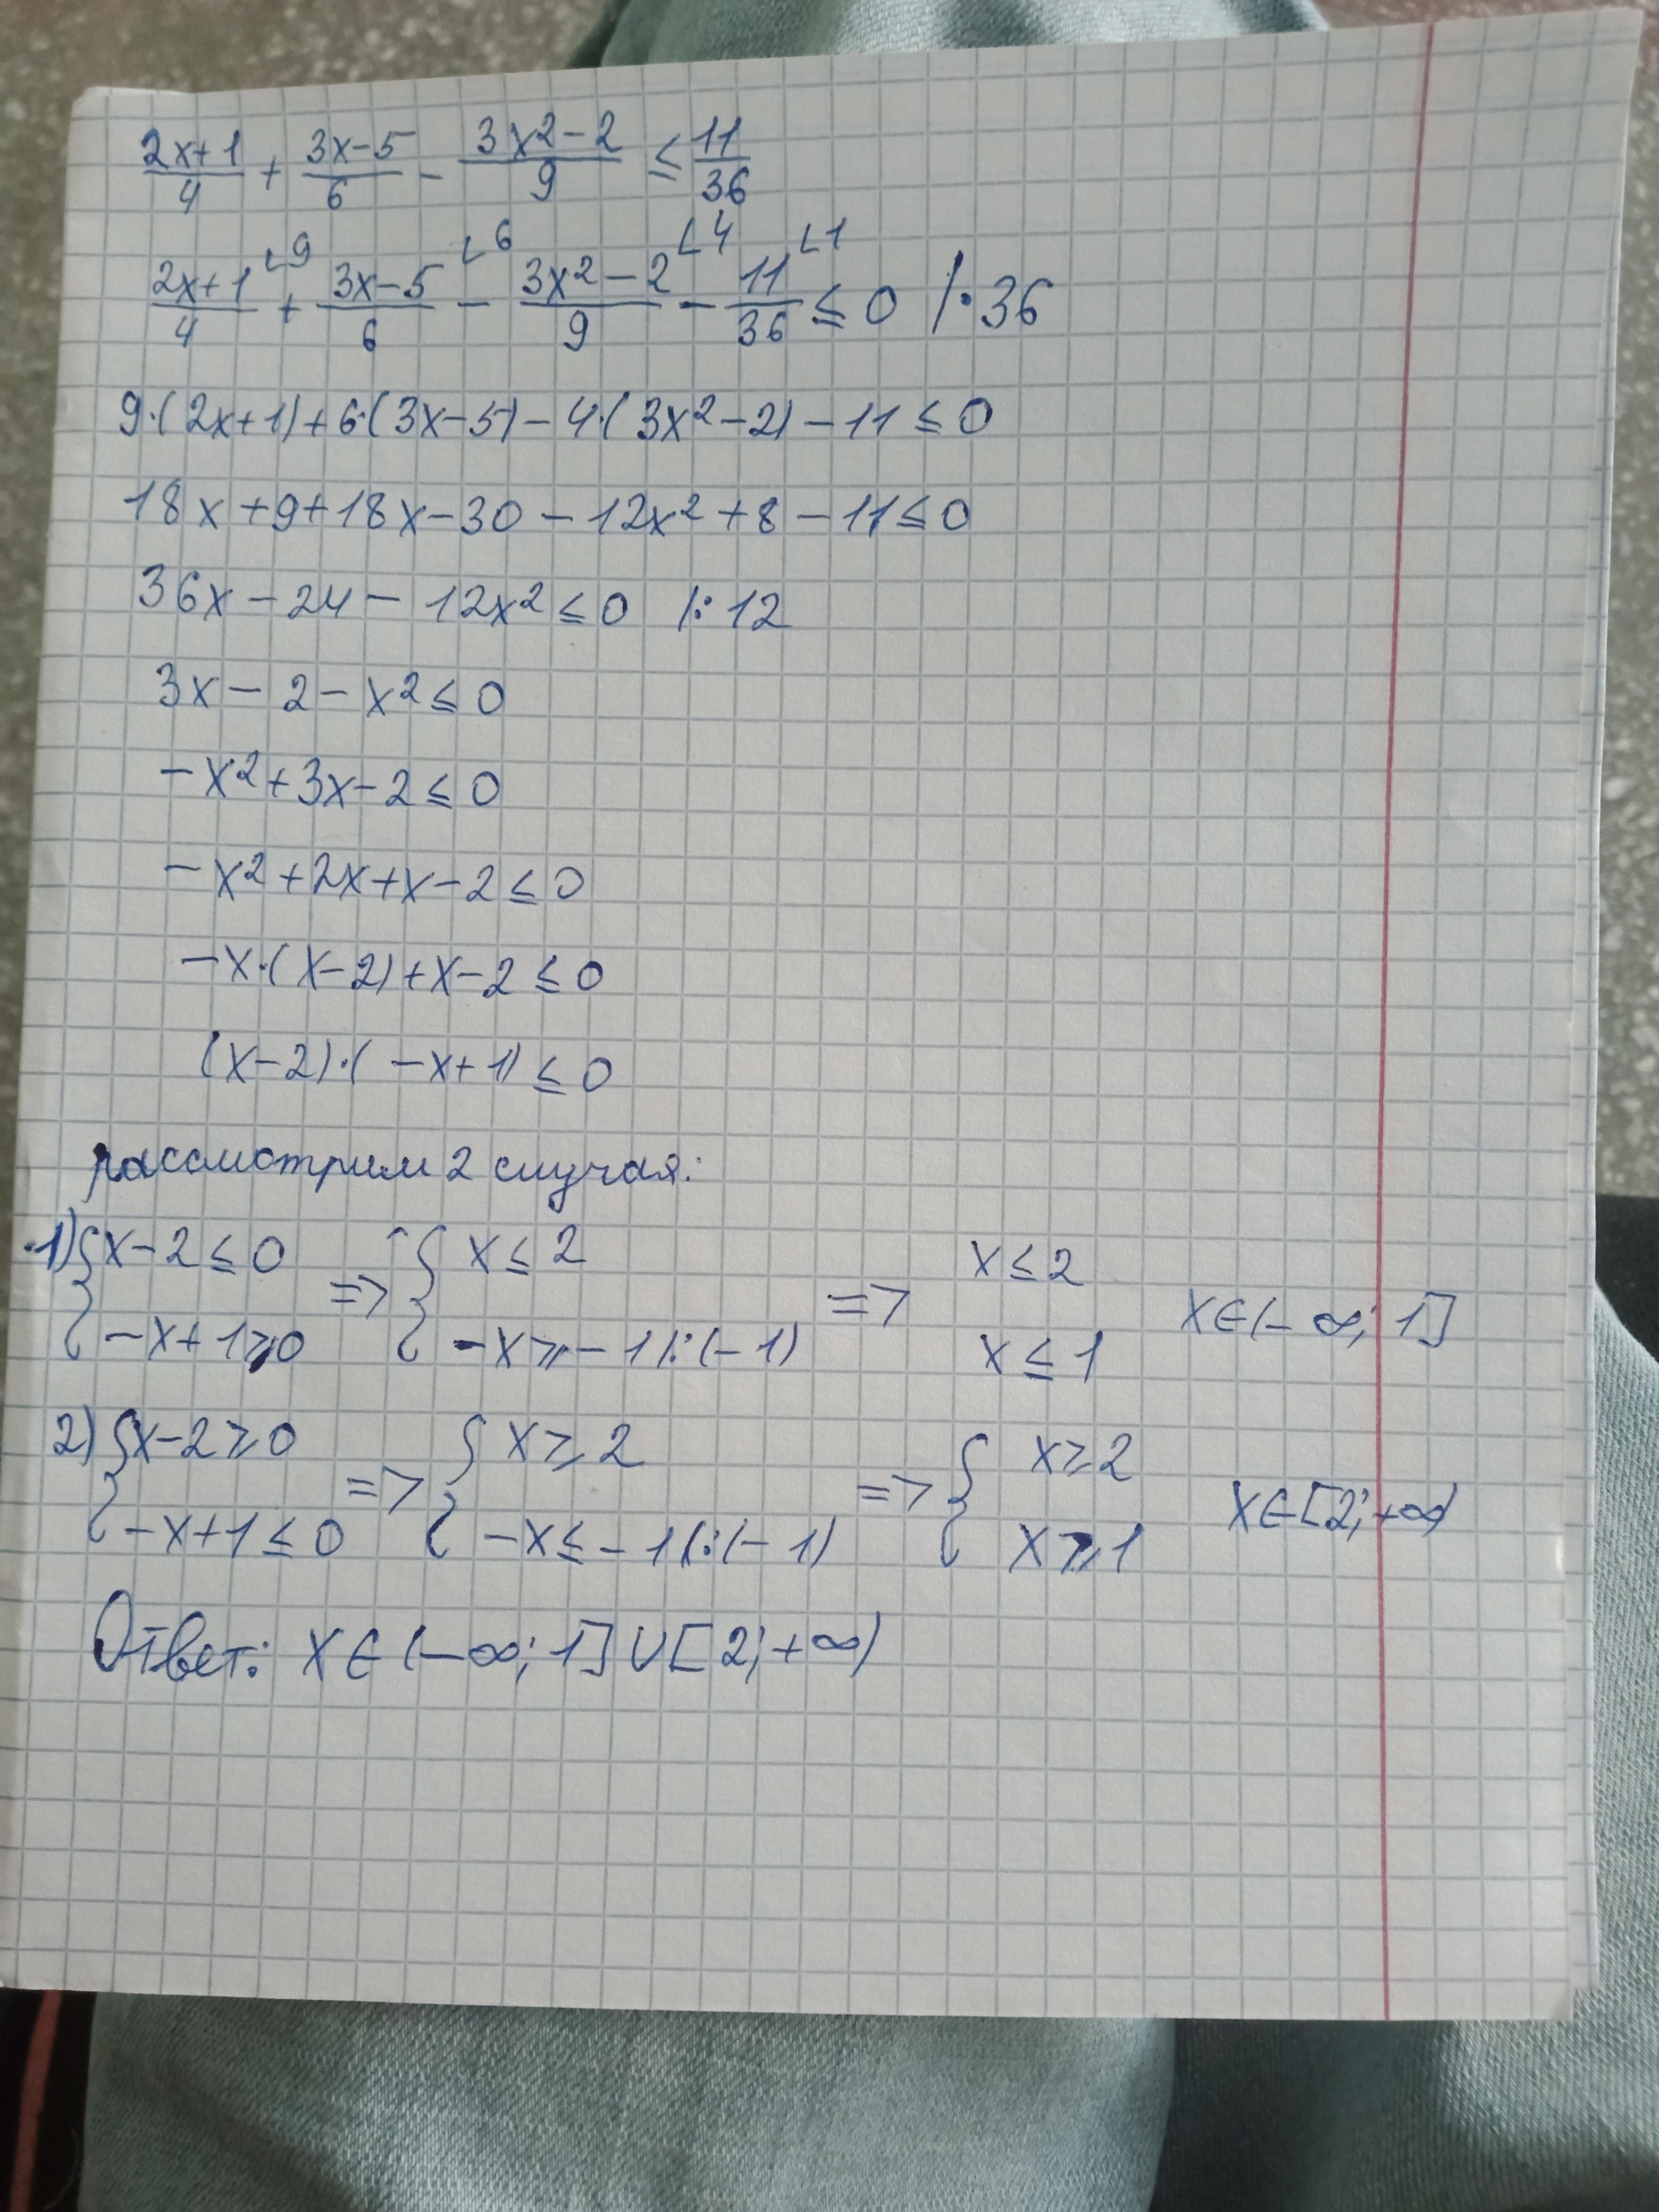 (2x+1)/4 + (3x-5)/6 - (3x²-2)/9 ≤ 11/36
(2x+1)/4 ⌞9 + (3x-5)/6 ⌞6 - (3x²-2)/9 ⌞4 - 11/36 ⌞1 ≤ 0 /·36
9·(2x+1)+6·(3x-5)-4·(3x²-2)-11≤0
18x+9+18x-30-12x²+8-11≤0
36x-24-12x²≤0 /:12
3x-2-x²≤0
-x²+3x-2≤0
-x²+2x+x-2≤0
-x·(x-2)+x-2≤0
(x-2)·(-x+1)≤0
рассмотрим 2 случая:
1) { x-2≤0 => { x≤2 => x≤2
-x+1≥0 -x≥-1 /:(-1) x≤1 x∈(-∞;1]
2) { x-2≥0 => { x≥2 => { x≥2
-x+1≤0 -x≤-1 /:(-1) x≥1 x∈[2;+∞)
Ответ: x∈(-∞;1]∪[2;+∞)